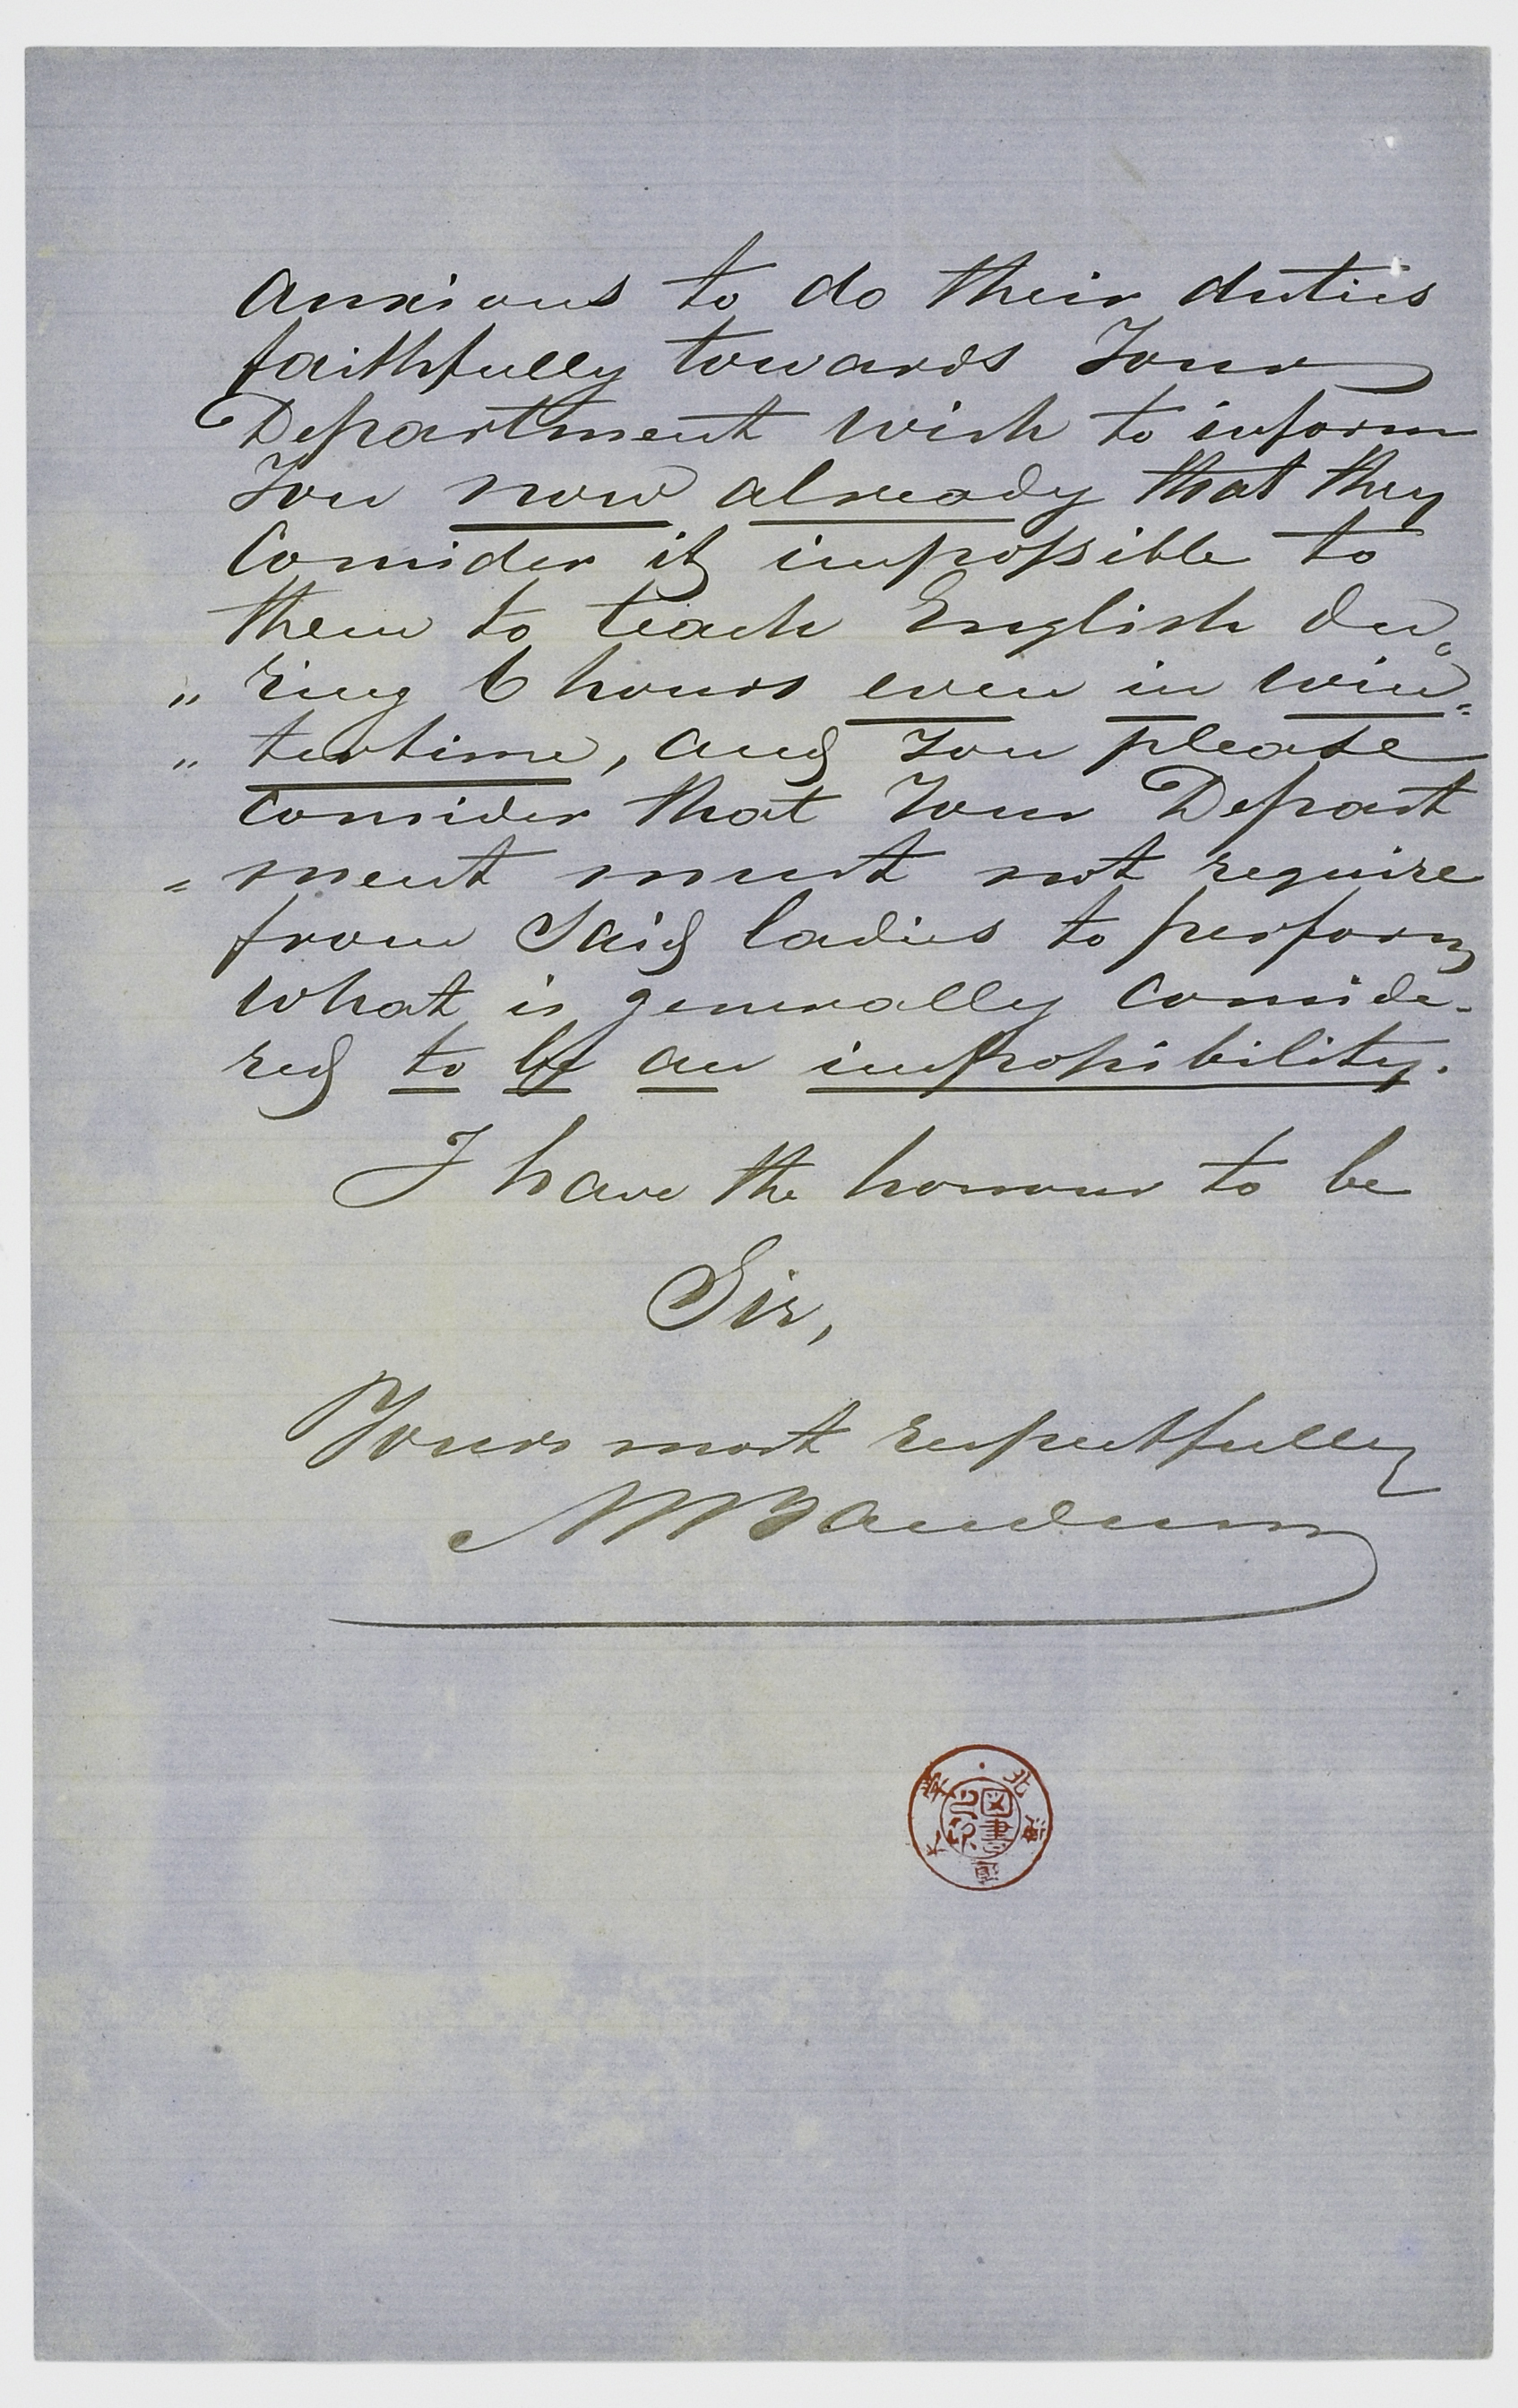 anxious to do their duties
faithfully towards Your
Department wish to inform
You now already that they
Consider it impossible to
them to teach English du„
„ ring 6 hours even in win=
„ tertime, and You please
consider that Your Depart
= ment must not require
from said ladies to perform
what is generally conside-
red to be an impossibility.
I have the honour to be
Sir,
Yours most respectfully
MMBaudun
北海道大学
図書館